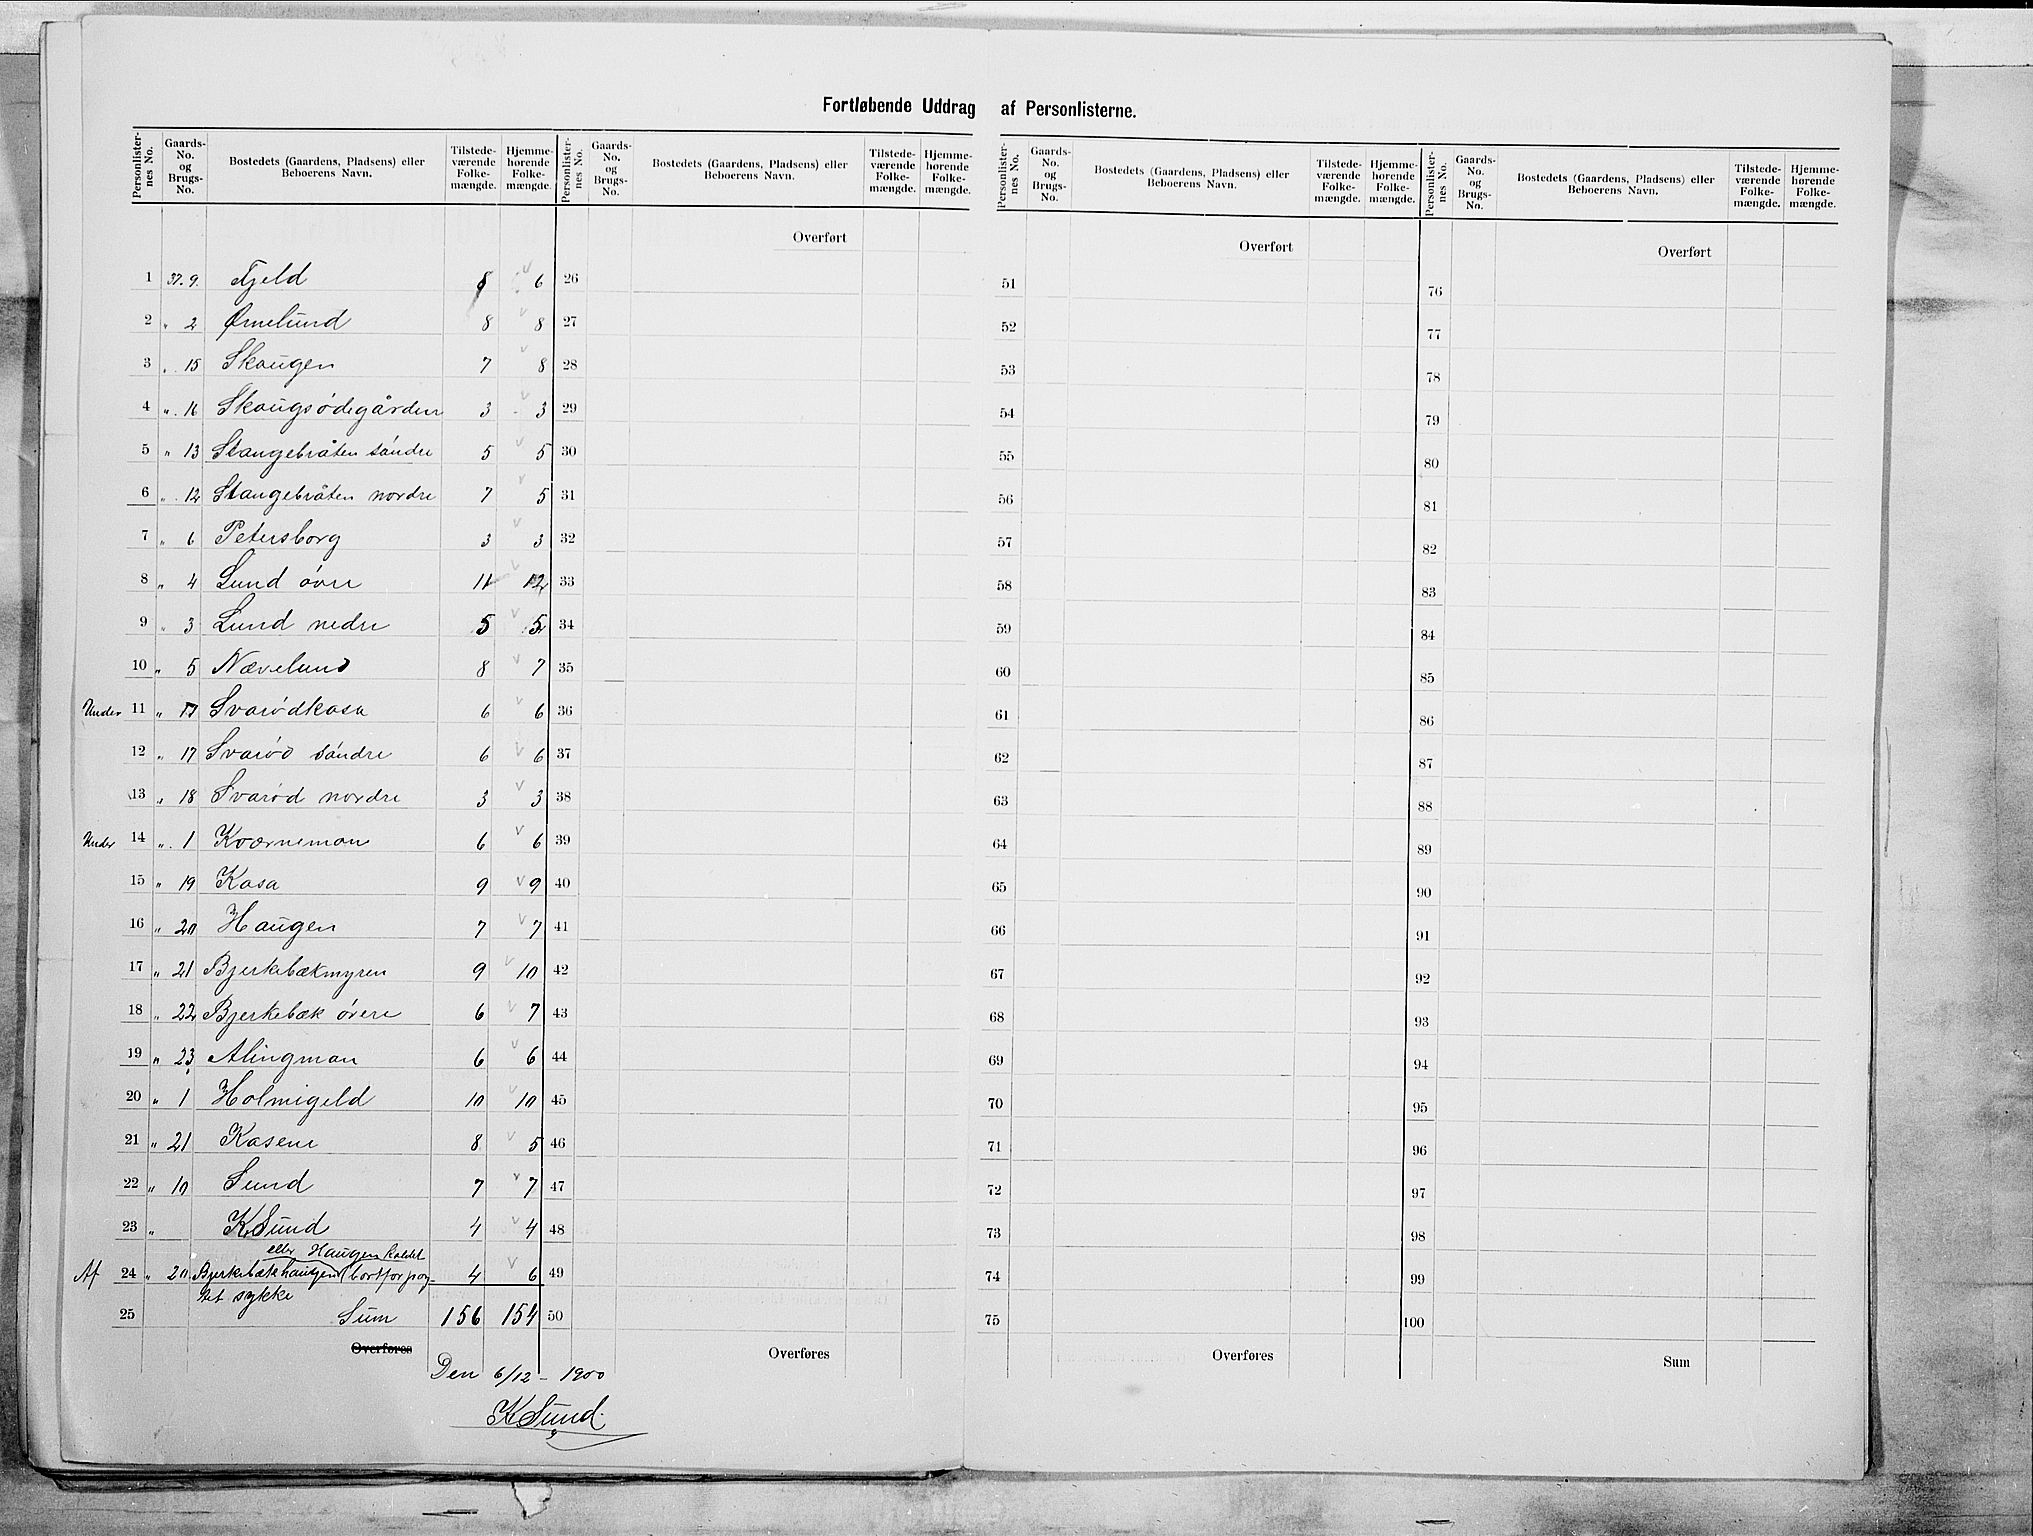 Fortløbende Uddrag af Personlisterne.
Personlister-nes No. Gaards-No. og Brugs-No. Bostedets (Gaardens, Pladsens) eller Beboerens Navn. Tilstede-værende Folke-mængde. Hjemme-hørende Folke-mængde.
Personlister-nes No. Gaards-No. og Brugs-No. Bostedets (Gaardens, Pladsens) eller Beboerens Navn. Tilstede-værende Folke-mængde. Hjemme-hørende Folke-mængde.
Personlister-nes No. Gaards-No. og Brugs-No. Bostedets (Gaardens, Pladsens) eller Beboerens Navn. Tilstede-værende Folke-mængde. Hjemme-hørende Folke-mængde.
Personlister-nes No. Gaards-No. og Brugs-No. Bostedets (Gaardens, Pladsens) eller Beboerens Navn. Tilstede-værende Folke-mængde. Hjemme-hørende Folke-mængde.
Overført Overført Overført
1 37. 9. Fjeld 8 6 26 51 76
2 " 2 Ørnelund 8 8 27 52 77
3 " 15 Skaugen 7 8 28 53 78
4 " 16 Skaugsødegården 3 3 29 54 79
5 " 13 Stangebråten søndre 5 5 30 55 80
6 " 12 Stangebråten nordre 7 5 31 56 81
7 " 6 Petersborg 3 3 32 57 82
8 " 4 Lund øvre 11 12 33 58 83
9 " 3 Lund nedre 5 5 34 59 84
10 " 5 Nævelund 8 7 35 60 85
Under 11 " 17 Svarødkasa 6 6 36 61 86
12 " 17 Svarød søndre 6 6 37 62 87
13 " 18 Svarød nordre 3 3 38 63 88
Under 14 " 1 Kværnemon 6 6 39 64 89
15 " 19 Kasa 9 9 40 65 90
16 " 20 Haugen 7 7 41 66 91
17 " 21 Bjerkebækmyren 9 10 42 67 92
18 " 22 Bjerkebæk øvre 6 7 43 68 93
19 " 23 Alingmon 6 6 44 69 94
20 " 1 Holmigeld 10 10 45 70 95
21 " 21 Kasene 8 5 46 71 96
22 " 10 Sund 7 7 47 72 97
23 " K. Sund 4 4 48 73 98
eller Haugen kaldet
Af 24 " 20 Bjerkebækhaugen (bortforpag- 4 6 49 74 99
tet sykke
25 Sum 156 154 50 75 100
Overføres Overføres Overføres Sum
Den 6/12 - 1900
K Sund.